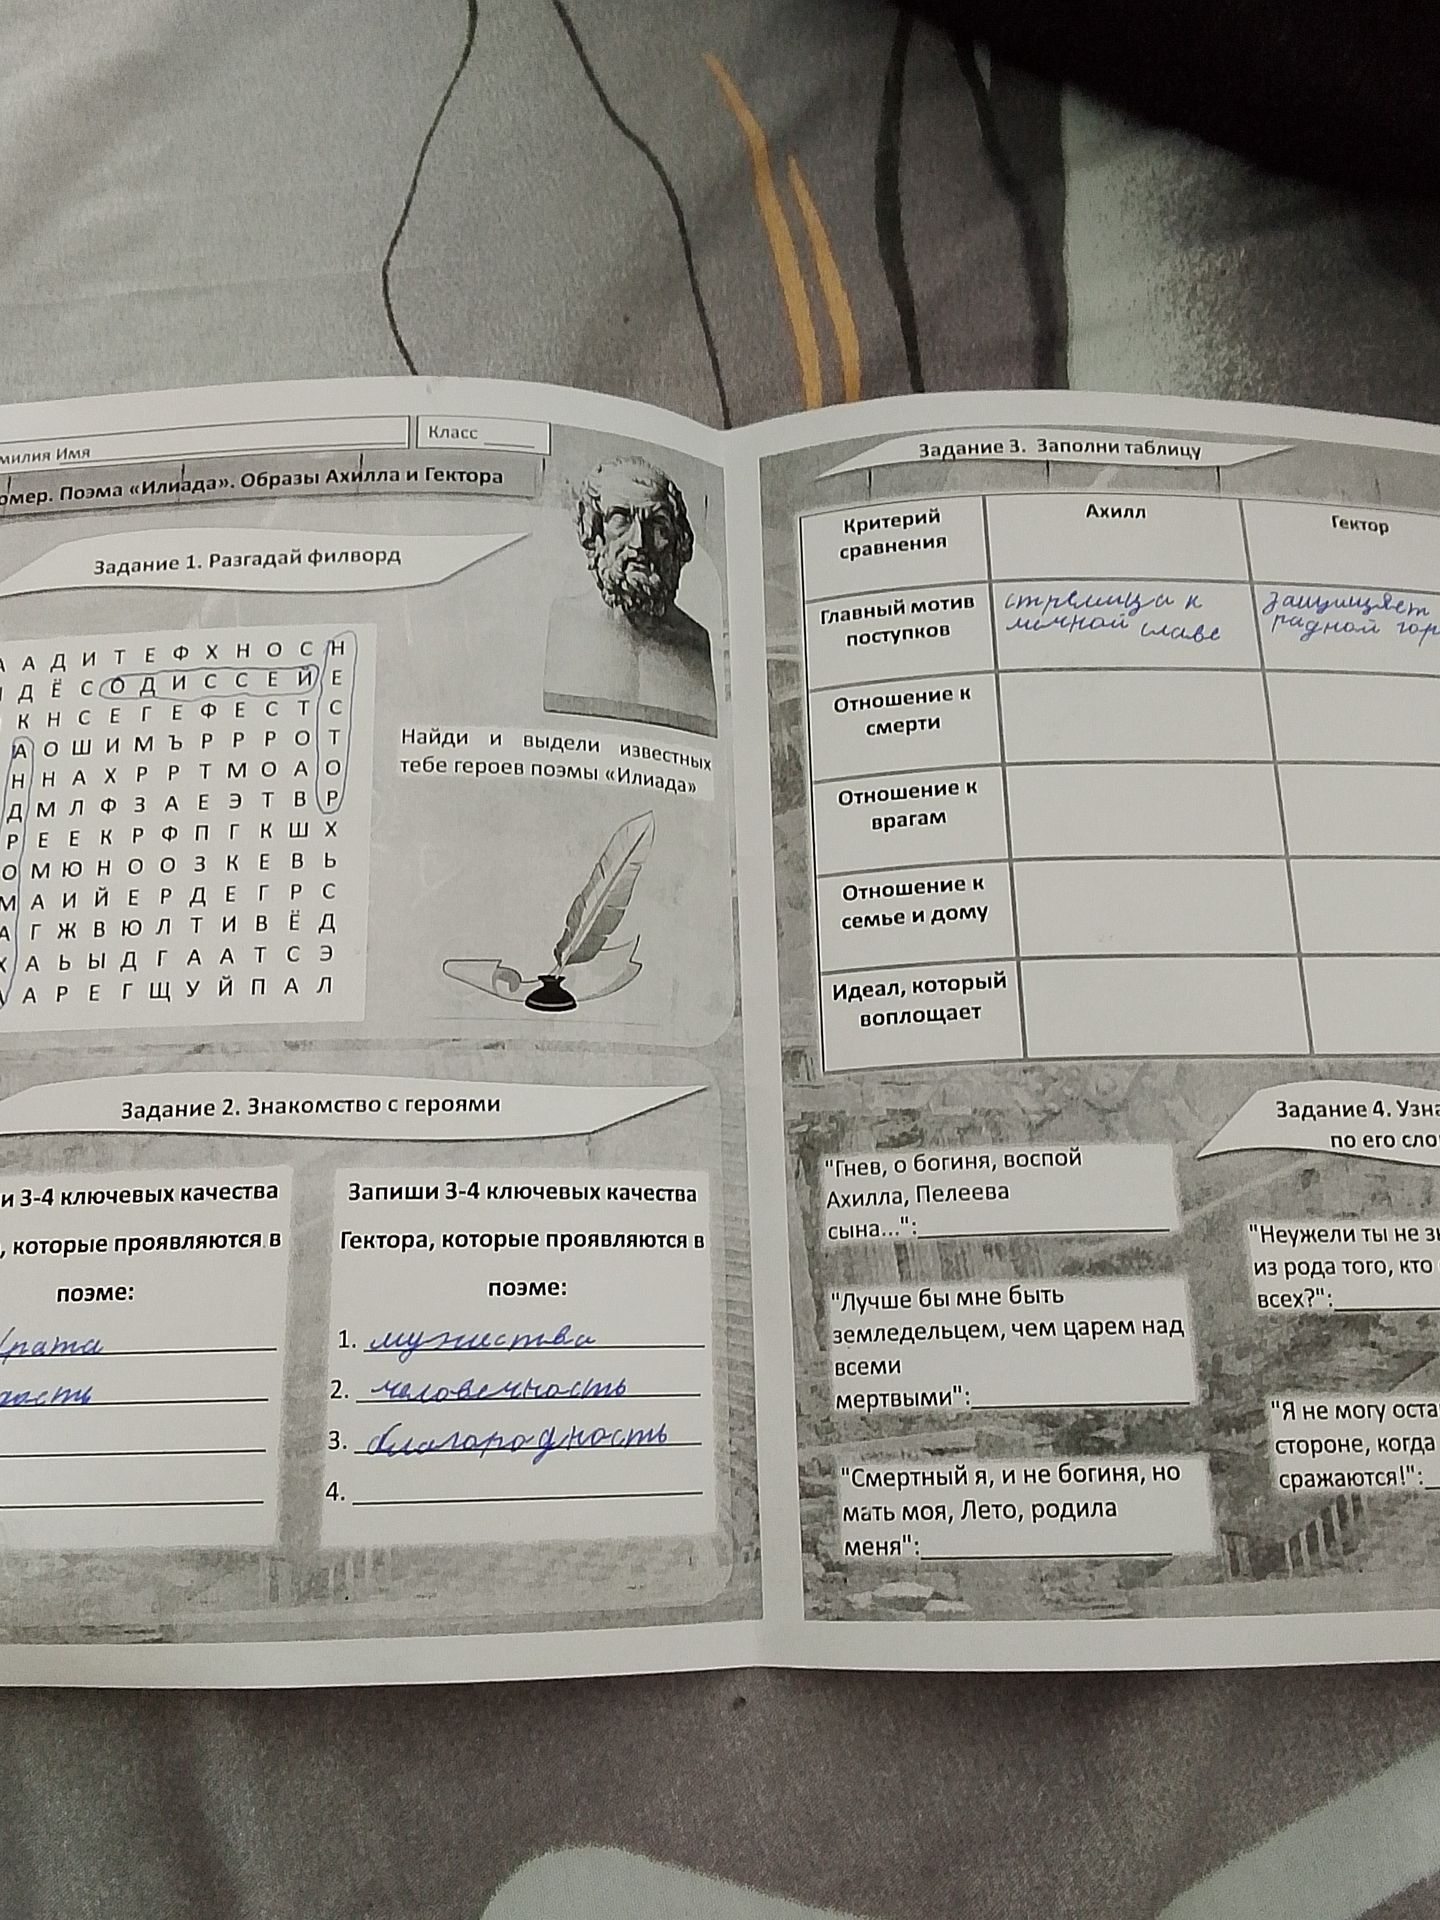 Имя
Класс
Поэма «Илиада». Образы Ахилла и Гектора
Задание 1. Разгадай филворд
А А Д И Т Е Ф Х Н О С Н
Д Ё С О Д И С С Е Й Е
К Н С Е Г Е Ф Е С Т С
А О Ш И М Ъ Р Р Р О Т
Н Н А Х Р Р Т М О А О
Д М Л Ф З А Е Э Т В Р
Р Е Е К Р Ф П Г К Ш Х
О М Ю Н О О З К Е В Ь
М А И Й Е Р Д Е Г Р С
А Г Ж В Ю Л Т И В Ё Д
Х А Ь Ы Д Г А А Т С Э
А Р Е Г Щ У Й П А Л
Найди и выдели известных
тебе героев поэмы «Илиада»
Задание 2. Знакомство с героями
и 3-4 ключевых качества
, которые проявляются в
поэме:
Запиши 3-4 ключевых качества
Гектора, которые проявляются в
поэме:
1. мужства
2. человечность
3. благородность
4.
Задание 3. Заполни таблицу
Критерий
сравнения
Ахилл
Гектор
Главный мотив
поступков
к
личной славе
защищяет
Отношение к
смерти
Отношение к
врагам
Отношение к
семье и дому
Идеал, который
воплощает
Задание 4.
по его
"Гнев, о богиня, воспой
Ахилла, Пелеева
сына...":
"Лучше бы мне быть
земледельцем, чем царем над
всеми
мертвыми":
"Смертный я, и не богиня, но
мать моя, Лето, родила
меня":
"Неужели ты не
из рода того, кто
всех?":
"Я не могу
стороне, когда
сражаются!":